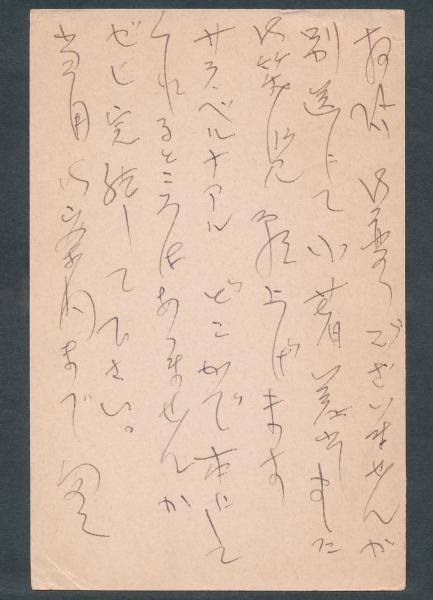 お変りございませんか
別送にて小著差出しました
御笑覧願上げます
サラ・ベルナアル どこかで本にして
くれるところはありませんか
ぜひ完結して下さい。
当用御案内まで